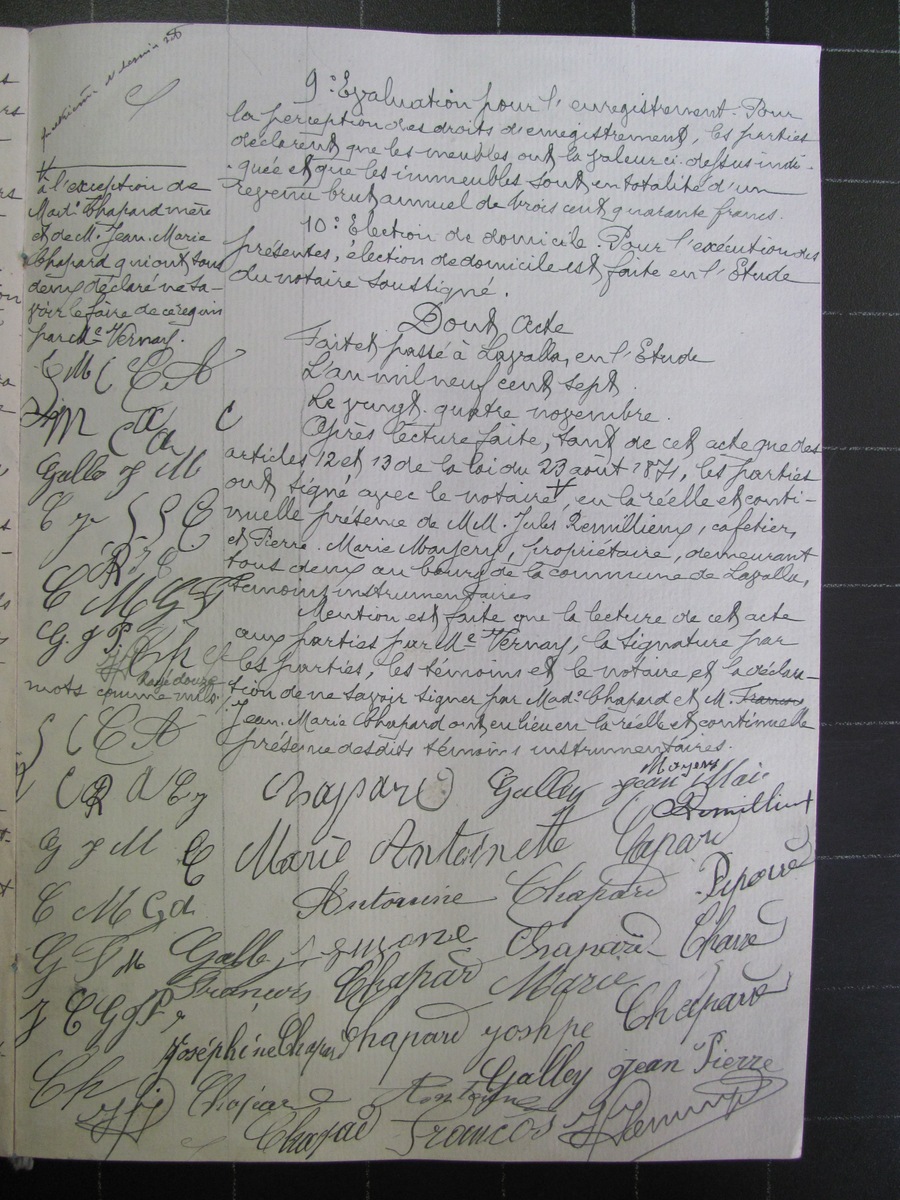 9° Evaluation pour l'enregistrement. Pour
la perception des droits d'enregistrement, les parties
déclarent que les meubles ont la valeur ci-dessus indi-
quée et que les immeubles sont en totalité d'un
revenu brut annuel de trois cent quarante francs.
10° Election de domicile. Pour l'exécution des
présentes, élection de domicile est faite en l'Etude
du notaire soussigné.
Dont Acte
Fait et passé à Lavalla, en l'Etude
L'an mil neuf cent sept.
Le vingt-quatre novembre.
Après lecture faite, tant de cet acte que des
articles 12 et 13 de la loi du 23 août 1871, les parties
ont signé avec le notaire, en la réelle et conti-
nuelle présence de MM. Jules Remillieux, cafetier,
et Pierre-Marie Moyeux, propriétaire, demeurant
tous deux au bourg de la commune de Lavalla,
témoins instrumentaires
Mention est faite que la lecture de cet acte
aux parties par Me Vernay, la signature par
les parties, les témoins et le notaire et la déclara-
tion de ne savoir signer par Made Chapard et M.
Jean-Marie Chapard ont eu lieu en la réelle et continuelle
présence desdits témoins instrumentaires.
à l'exception de
Made Chapard mère
et de M. Jean-Marie
Chapard qui ont tous
deux déclaré ne sa-
voir le faire de ce requis
par Me Vernay.
E M C C A
Galley J M
C M G J
G. J P.
Rayé douze
mots comme nuls
C A
G J M C
C M G
G J M
Chapard Galley Jean
Marie Antoinette Chapard
Antoine Chapard
Chapard
François Chapard Marie
Joséphine Chapard Chapard Chapard
Galley Jean Pierre
Chapard Antoine
Chapad Francos